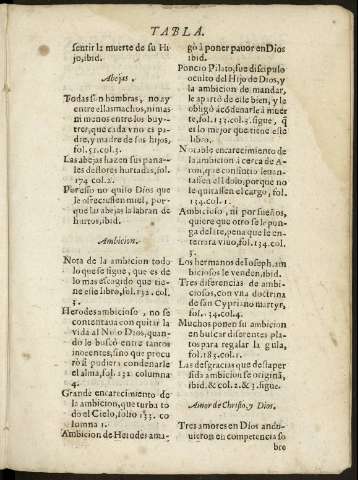 TABLA.
sentir la muerte de su Hi
jo, ibid.
Abejas.
Todas son hembras, no ay
entre ellas machos, ni mas
ni menos entre los buy-
tres, que cada vno es pa-
dre, y madre de sus hijos,
fol. 51. col. 3.
Las abejas hazen sus pana-
les de flores hurtadas, fol.
174 col. 2.
Por esso no quiso Dios que
le ofreciessen miel, por-
que las abejas la labran de
hurtos, ibid.
Ambicion.
Nota de la ambicion todo
lo que se sigue, que es de
lo mas escogido que tie-
ne este libro, fol. 132. col.
3.
Herodes ambicioso, no se
contentaua con quitar la
vida al Niño Dios, quan-
do le buscò entre tantos
inocentes, sino que procu
rò si pudiera condenarle
el alma, fol. 132 columna
4.
Grande encarecimiento de
la ambicion, que turba to
do el Cielo, folio 133. co
lumna 1.
Ambicion de Herodes ama-
gò à poner pauor en Dios
ibid.
Poncio Pilato, fue discipulo
oculto del Hijo de Dios, y
la ambicion de mandar,
le apartò de este bien, y le
obligò à condenarle à muer
te, fol. 133. col. 3. sigue, q̃
es lo mejor que tiene este
libro.
Notable encarecimiento de
la ambicion à cerca de A-
ron, que consintio leuan-
tassen el Idolo, porque no
le quitassen el cargo, fol.
134. col. 1.
Ambicioso, ni por sueños,
quiere que otro se le pon-
ga delante, pena que le en-
terrara viuo, fol. 134. col.
3.
Los hermanos de Ioseph, am
biciosos le venden, ibid.
Tres diferencias de ambi-
ciosos, con vna doctrina
de san Cypriano martyr,
fol. 134. col. 4.
Muchos ponen su ambicion
en buscar diferentes pla-
tos para regalar la gula,
fol. 183. col. 1.
Las desgracias que desta per
sida ambicion se originã,
ibid. & col. 2. & 3. sigue.
Amor de Christo, y Dios.
Tres amores en Dios andu-
uieron en competencia so
bre